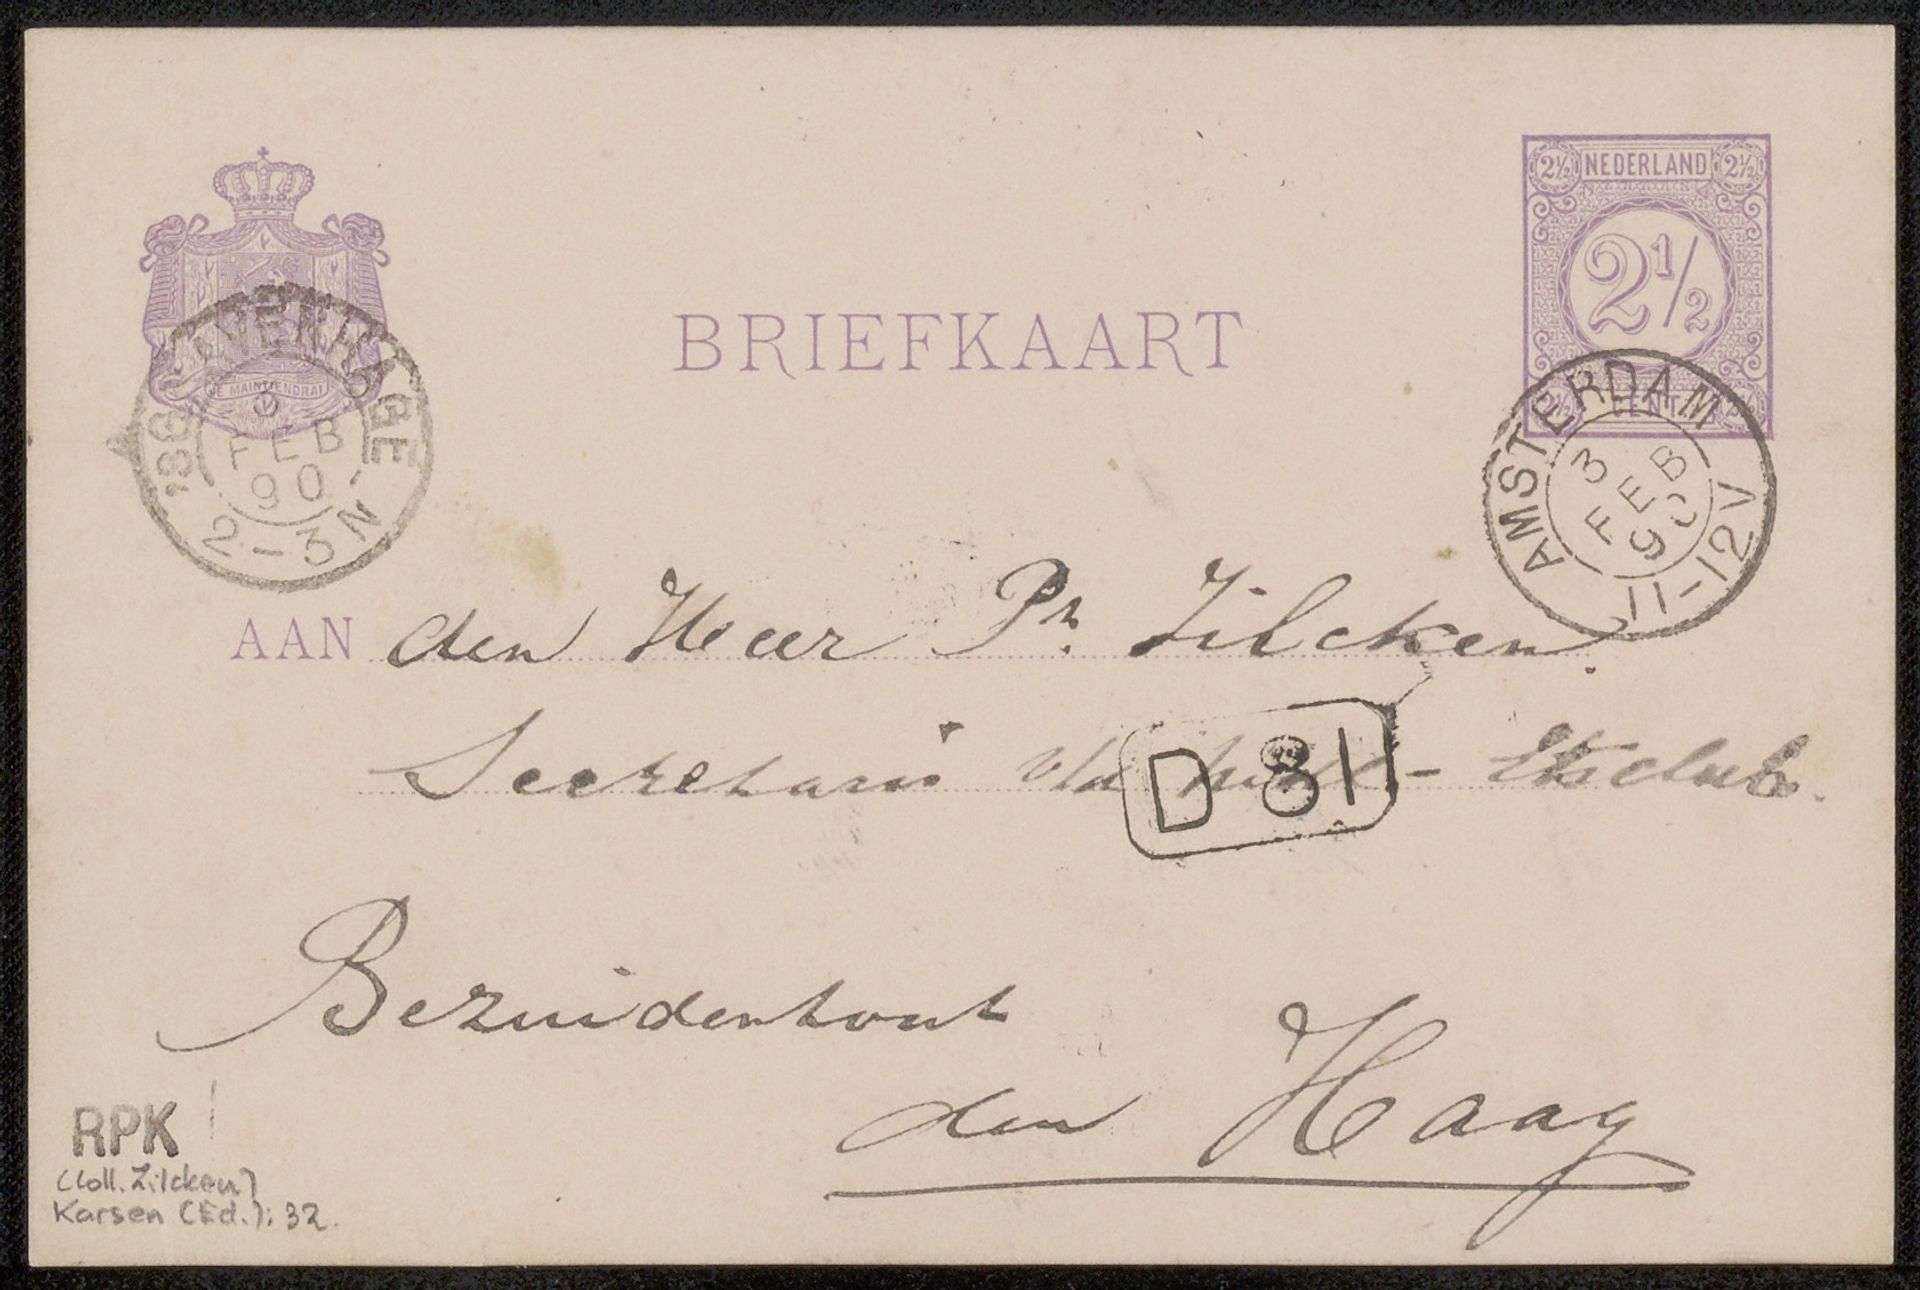 2½ NEDERLAND 2½
2½
2½ CENT 2½
BRIEFKAART
JE MAINTIENDRAI
'SGRAVENHAGE
3
FEB
90
2-3N
AMSTERDAM
3
FEB
90
11-12V
AAN den Heer Ph. Zilcken.
Secretaris v/d Etsclub.
D 81
Bezuidenhout
den Haag
RPK
(Coll. Zilcken)
Karsen (Ed.): 32.